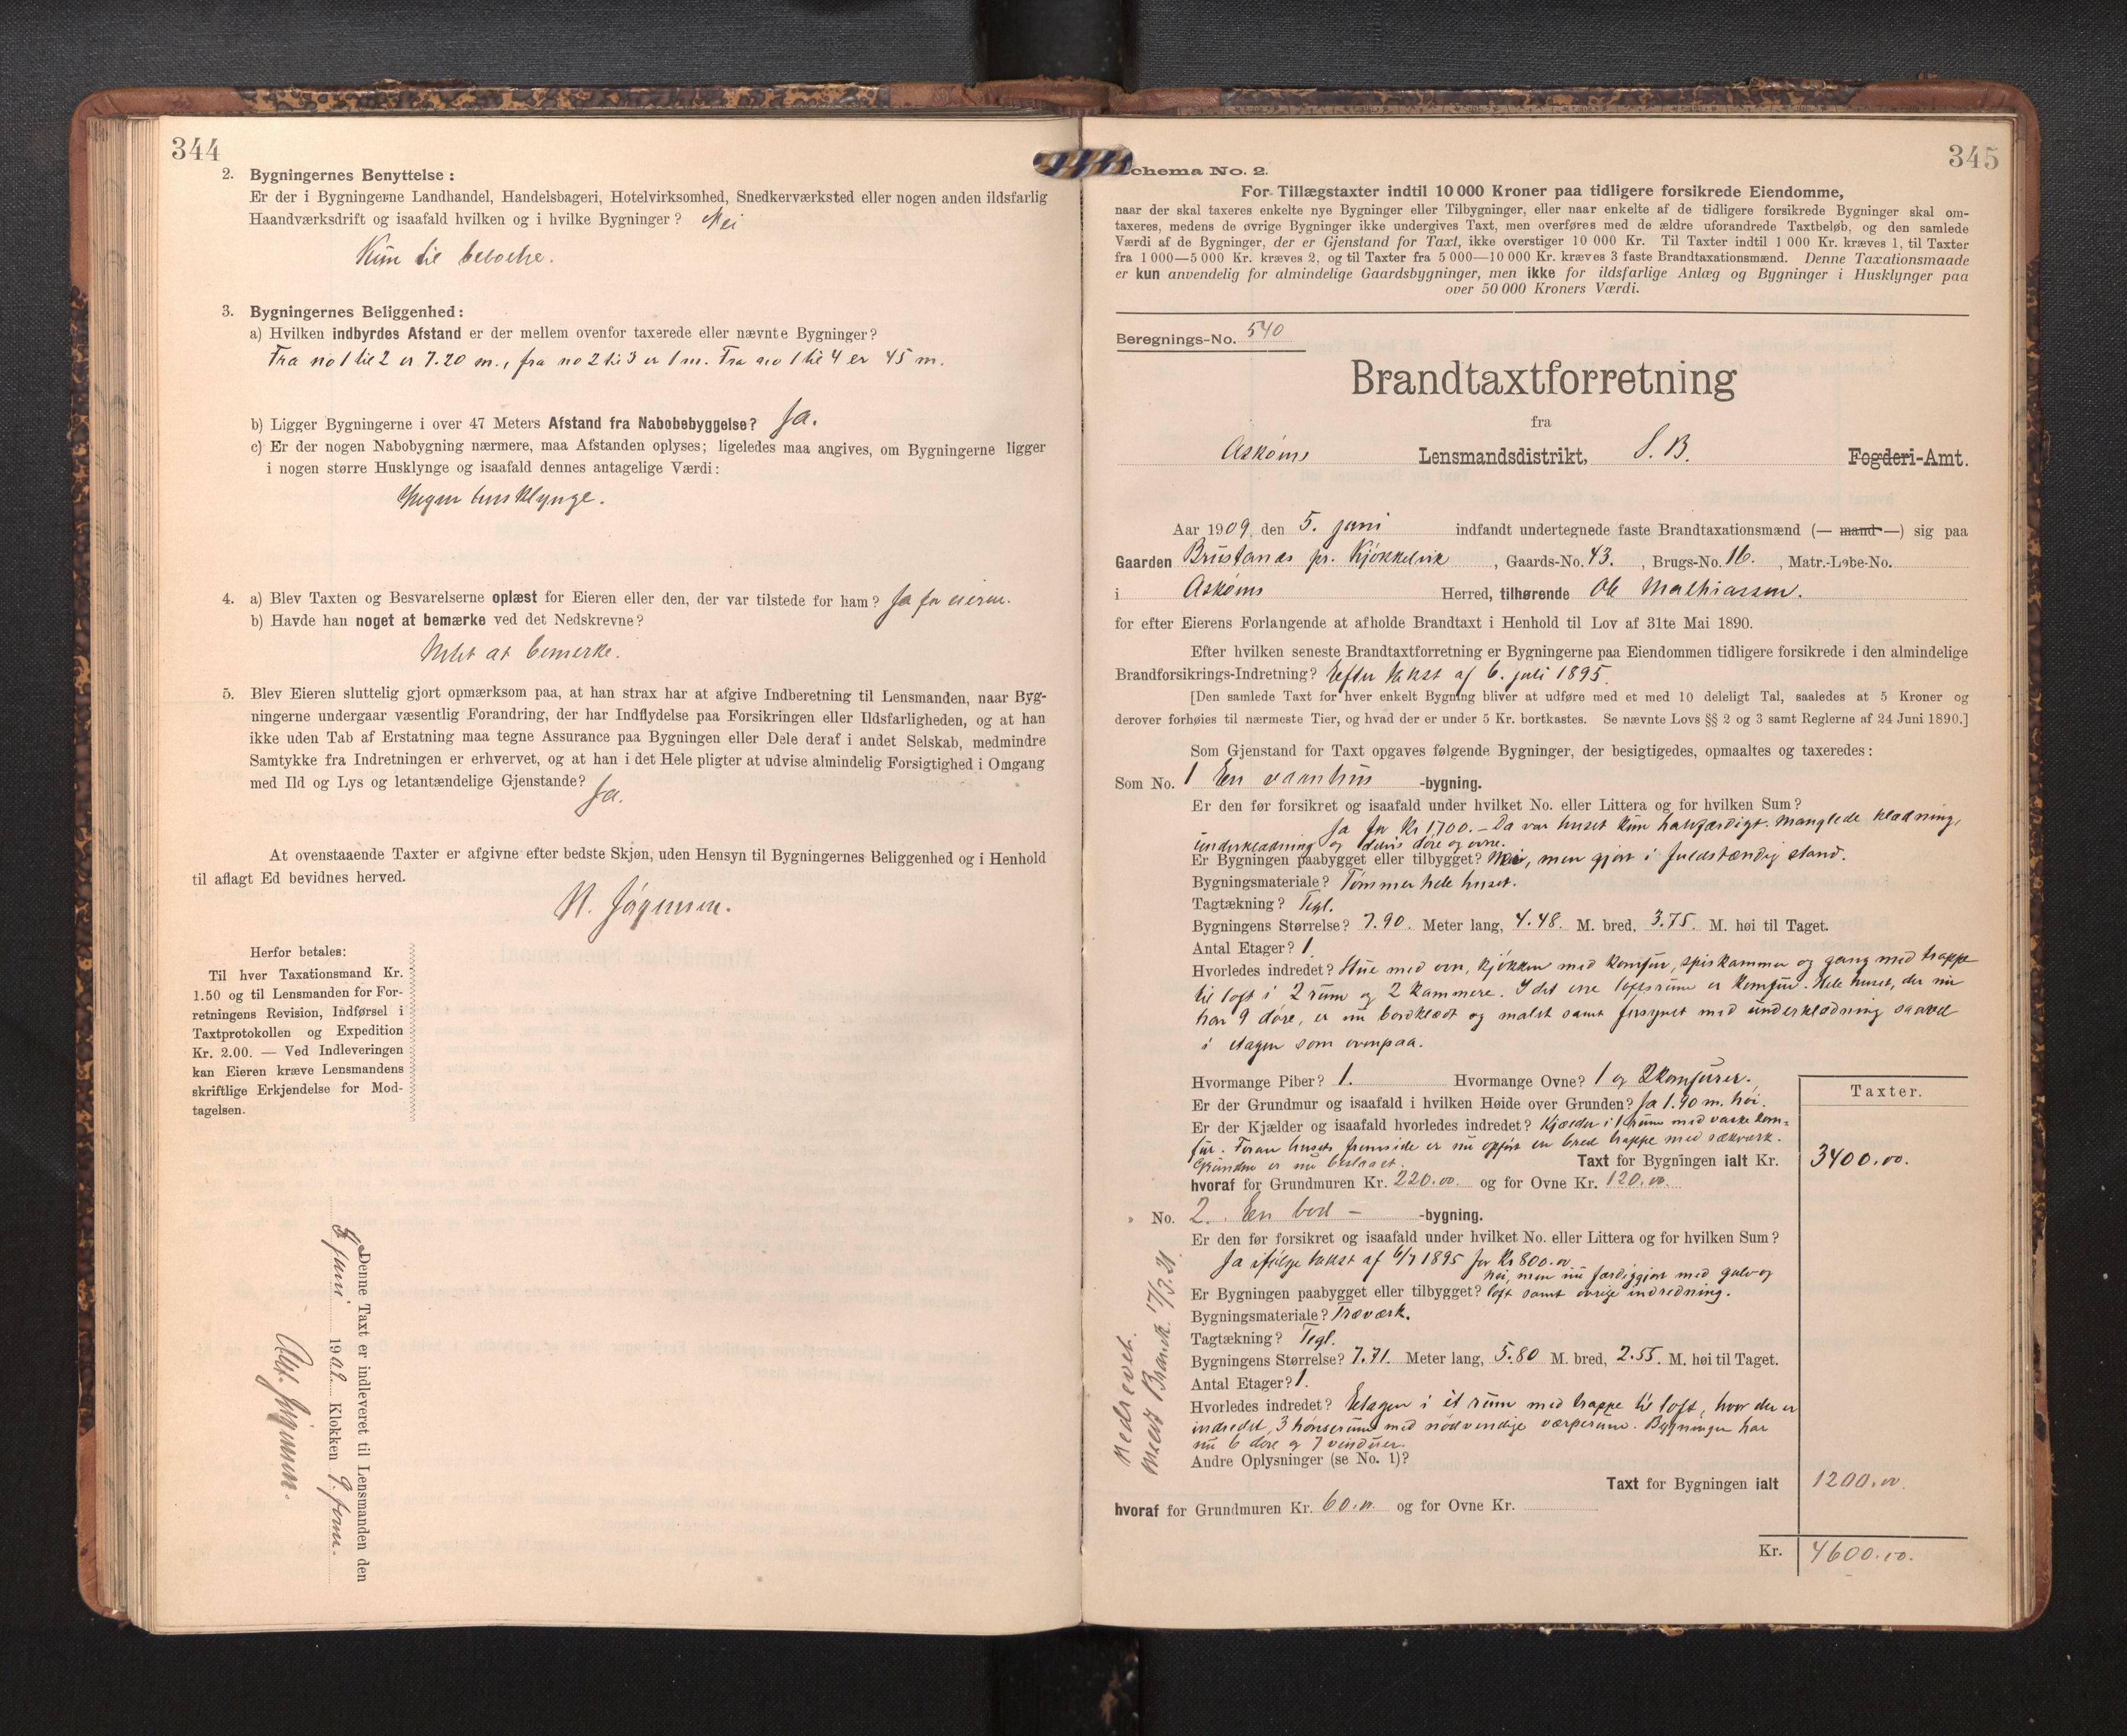 344
2. Bygningernes Benyttelse :
Er der i Bygningerne Landhandel, Handelsbageri, Hotelvirksomhed, Snedkerværksted eller nogen anden ildsfarlig
Haandværksdrift og isaafald hvilken og i hvilke Bygninger? Nei
Kun til beboelse.
3. Bygningernes Beliggenhed :
a) Hvilken indbyrdes Afstand er der mellem ovenfor taxerede eller nævnte Bygninger?
Fra no 1 til 2 er 7.20 m., fra no 2 til 3 er 1 m. Fra no 1 til 4 er 45 m.
b) Ligger Bygningerne i over 47 Meters Afstand fra Nabobebyggelse? Ja.
c) Er der nogen Nabobygning nærmere, maa Afstanden oplyses; ligeledes maa angives, om Bygningerne ligger
i nogen større Husklynge og isaafald dennes antagelige Værdi:
Ingen husklynge.
4. a) Blev Taxten og Besvarelserne oplæst for Eieren eller den, der var tilstede for ham? Ja for eieren.
b) Havde han noget at bemærke ved det Nedskrevne?
Intet at bemerke.
5. Blev Eieren sluttelig gjort opmærksom paa, at han strax har at afgive Indberetning til Lensmanden, naar Byg-
ningerne undergaar væsentlig Forandring, der har Indflydelse paa Forsikringen eller Ildsfarligheden, og at han
ikke uden Tab af Erstatning maa tegne Assurance paa Bygningen eller Dele deraf i andet Selskab, medmindre
Samtykke fra Indretningen er erhvervet, og at han i det Hele pligter at udvise almindelig Forsigtighed i Omgang
med Ild og Lys og letantændelige Gjenstande? Ja.
At ovenstaaende Taxter er afgivne efter bedste Skjøn, uden Hensyn til Bygningernes Beliggenhed og i Henhold
til aflagt Ed bevidnes herved.
N. Jørgensen.
Herfor betales:
Til hver Taxationsmand Kr.
1.50 og til Lensmanden for For-
retningens Revision, Indførsel i
Taxtprotokollen og Expedition
Kr. 2.00. — Ved Indleveringen
kan Eieren kræve Lensmandens
skriftlige Erkjendelse for Mod-
tagelsen.
Denne Taxt er indleveret til Lensmanden den
5 juni 190 Klokken 9. form.
Jørgensen.
345
Schema No. 2.
For Tillægstaxter indtil 10 000 Kroner paa tidligere forsikrede Eiendomme,
naar der skal taxeres enkelte nye Bygninger eller Tilbygninger, eller naar enkelte af de tidligere forsikrede Bygninger skal om-
taxeres, medens de øvrige Bygninger ikke undergives Taxt, men overføres med de ældre uforandrede Taxtbeløb, og den samlede
Værdi af de Bygninger, der er Gjenstand for Taxt, ikke overstiger 10 000 Kr. Til Taxter indtil 1 000 Kr. kræves 1, til Taxter
fra 1 000—5 000 Kr. kræves 2, og til Taxter fra 5 000—10 000 Kr. kræves 3 faste Brandtaxationsmænd. Denne Taxationsmaade
er kun anvendelig for almindelige Gaardsbygninger, men ikke for ildsfarlige Anlæg og Bygninger i Husklynger paa
over 50 000 Kroners Værdi.
Beregnings-No. 540
Brandtaxtforretning
fra
Askøens Lensmandsdistrikt, S. B. Fogderi-Amt.
Aar 1909, den 5. juni indfandt undertegnede faste Brandtaxationsmænd (— mand —) sig paa
Gaarden Brustanæs pr. Kjøkkelvik, Gaards-No. 43., Brugs-No. 16., Matr.-Løbe-No.
i Askøens Herred, tilhørende Ole Mathiassen.
for efter Eierens Forlangende at afholde Brandtaxt i Henhold til Lov af 31te Mai 1890.
Efter hvilken seneste Brandtaxtforretning er Bygningerne paa Eiendommen tidligere forsikrede i den almindelige
Brandforsikrings-Indretning? Efter takst af 6. juli 1895.
[Den samlede Taxt for hver enkelt Bygning bliver at udføre med et med 10 deleligt Tal, saaledes at 5 Kroner og
derover forhøies til nærmeste Tier, og hvad der er under 5 Kr. bortkastes. Se nævnte Lovs §§ 2 og 3 samt Reglerne af 24 Juni 1890.]
Som Gjenstand for Taxt opgaves følgende Bygninger, der besigtigedes, opmaaltes og taxeredes :
Som No. 1 En vaanhus -bygning.
Er den før forsikret og isaafald under hvilket No. eller Littera og for hvilken Sum?
Ja for Kr 1700. – Da var huset kun halvfærdigt. Manglede klædning,
underklædning og delvis døre og ovne.
Er Bygningen paabygget eller tilbygget? Nei, men gjort i fuldstændig stand.
Bygningsmateriale? Tømmer hele huset.
Tagtækning? Tegl.
Bygningens Størrelse? 7.90. Meter lang, 4.48. M. bred, 3.75. M. høi til Taget.
Antal Etager? 1.
Hvorledes indredet? Stue med ovn, kjøkken med komfur, spiskammer og gang med trappe
til loft i 2 rum og 2 kammere. I det ene loftsrum er komfur. Hele huset, der nu
har 9 døre, er nu bordklædt og malet samt forsynet med underklædning saavel
i etagen som ovenpaa.
Hvormange Piber? 1. Hvormange Ovne? 1 og 2 komfurer.
Er der Grundmur og isaafald i hvilken Høide over Grunden? Ja 1.90 m. høi.
Er der Kjælder og isaafald hvorledes indredet? Kjælder i 1 rum med vaske kom-
fur. Foran husets fremside er nu opført en bred trappe med rækværk.
Grunden er nu beslaaet.
Taxter.
Taxt for Bygningen ialt Kr. 3400.00.
hvoraf for Grundmuren Kr. 220.00 og for Ovne Kr. 120.00.
No. 2. En bod – -bygning.
Er den før forsikret og isaafald under hvilket No. eller Littera og for hvilken Sum?
Ja ifølge takst af 6/7 1895 for Kr 800.00
Nei, men nu færdiggjort med gulv og
Er Bygningen paabygget eller tilbygget? loft samt øvrige indredning.
Bygningsmateriale? Træværk.
Tagtækning? Tegl.
Bygningens Størrelse? 7.71. Meter lang, 5.80 M. bred, 2.55. M. høi til Taget.
Antal Etager? 1.
Hvorledes indredet? Etagen i et rum med trappe til loft, hvor der er
indredet 3 hønserum med nødvendige værperum. Bygningen har
nu 6 døre og 7 vinduer.
Andre Oplysninger (se No. 1)?
Taxt for Bygningen ialt 1200.00.
hvoraf for Grundmuren Kr. 60.00. og for Ovne Kr.
Kr. 4600.00.
Nedrevet.
17/3.21.